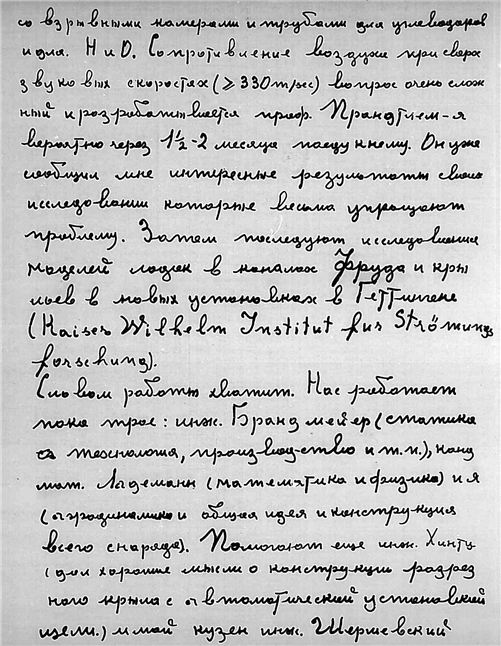 со взрывными камерами и трубами для углеводоров
и для. H и O. Сопротивление воздуха при сверх
звуковых скоростях (≥ 330 m/sec) вопрос очень слож
ный и розработывается проф. Прандтлем - я
вероятно через 1½-2 месяца поеду к нему. Он уже
сообщил мне интересные результаты своих
исследовании которые весьма упрощают
проблему. Затем последуют исследования
моделей лодок в каналах Фруда и кры
льев в новых установках в Геттингене
(Kaiser Wilhelm Institut fur Strömungs
forschung).
Словом работы хватит. Нас работает
пока трое: инж. Брандмейер (статика
технология, производство и т.п.), канд
мат. Лыдеманн (математика и физика) и я
(аэродинамика и общая идея и конструкция
всего снаряда). Помогают еще инж. Хинтц
(дал хорошие мысли о конструкции разрез
ного крыла с автоматической установкой
щели.) и мой кузен инж. Шершевский